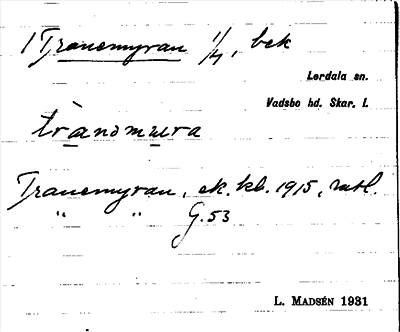 1 Tranemyran 1/4, bek
Lerdala sn.
Vadsbo hd. Skar. l.
trànɔmura
Tranemyran, ek. kb. 1915, mtl.
" " G. 53
L. MADSÉN 1931